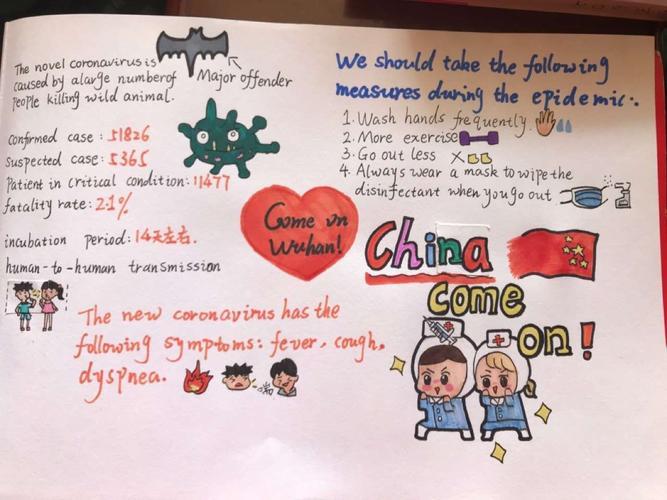 The novel coronavirus is
caused by a large number of
people killing wild animal.
Major offender
confirmed case: 51826
Suspected case: 5365
Patient in critical condition: 11477
fatality rate: 2.1%
incubation period: 14天左右.
human-to-human transmission
The new coronavirus has the
following symptoms: fever, cough,
dyspnea.
Come on
Wuhan!
We should take the following
measures during the epidemic:.
1. Wash hands frequently.
2. More exercise
3. Go out less
4. Always wear a mask to wipe the
disinfectant when you go out
China
come
on!